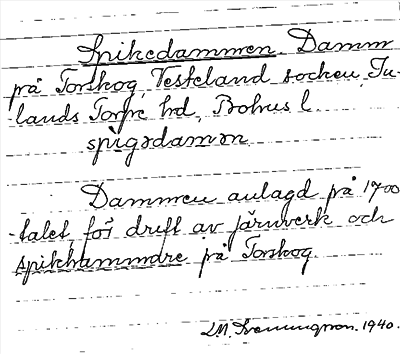 Spikedammen. Damm
på Torskog, Västerland socken, In-
lands Torpe hd, Bohus l.
spìgədamən
Dammen anlagd på 1700
-talet, för drift av järnverk och
spikhammare på Torskog.
1940.